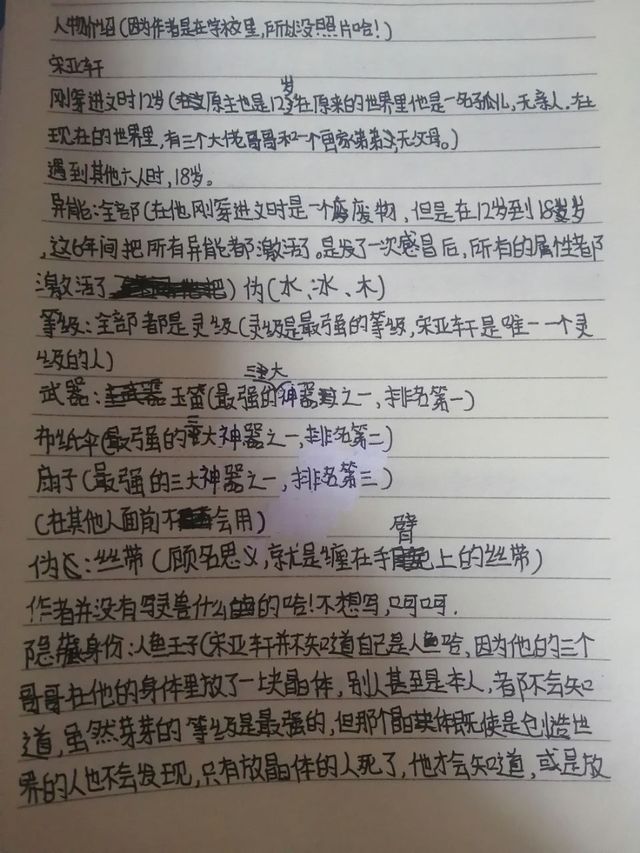 人物介绍(因为作者是在学校里,所以没照片哈!)
宋亚轩
刚穿进文时12岁(原主也是12岁在原来的世界里他是一名孤儿,无亲人.在
现在的世界里,有三个大佬哥哥和一个画家弟弟,无父母。)
遇到其他六人时,18岁。
异能:全部(在他刚穿进文时是一个废物,但是在12岁到18岁
,这6年间把所有异能都激活了。是发了一次感冒后,所有的属性都
激活了)伪(水、冰、木)
等级:全部都是灵级(灵级是最强的等级,宋亚轩是唯一一个灵
级的人)
武器:玉笛(最强的三大神器之一,排名第一)
布纸伞(最强的三大神器之一,排名第二)
扇子(最强的三大神器之一,排名第三)
(在其他人面前不会用)
伪:丝带(顾名思义,就是缠在手臂上的丝带)
作者并没有写灵兽什么的哈!不想写,呵呵.
隐藏身份:人鱼王子(宋亚轩并不知道自己是人鱼哈,因为他的三个
哥哥在他的身体里放了一块晶体,别人甚至是本人,都不会知
道,虽然芽芽的等级是最强的,但那个晶体既使是创造世
界的人也不会发现,只有放晶体的人死了,他才会知道,或是放